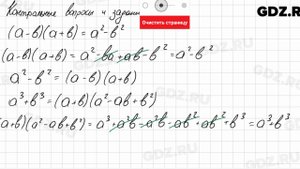 GDZ.RU
Контрольные вопросы и задания
Очистить страницу
(a-b)(a+b) = a²-b²
(a-b)(a+b) = a²-ab+ab-b² = a²-b²
a²-b² = (a-b)(a+b)
a³+b³ = (a+b)(a²-ab+b²)
a+b)(a²-ab+b²) = a³+a²b-a²b-ab²+ab²+b³ = a³+b³